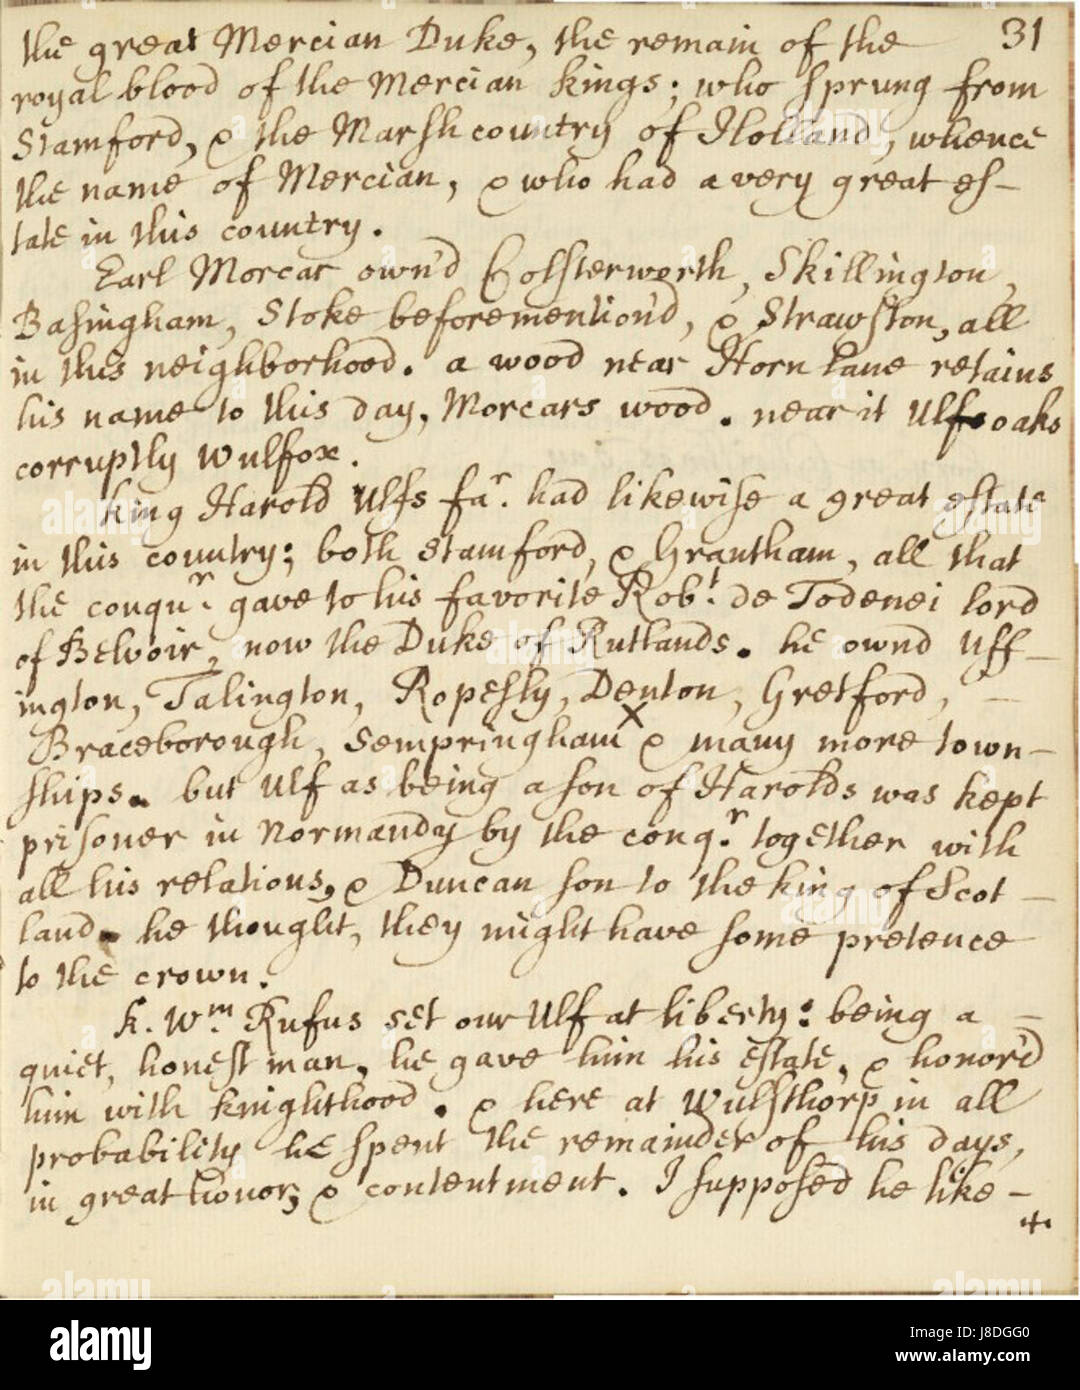 31
the great Mercian Duke, the remain of the
royal blood of the Mercian kings; who sprung from
Stamford, & the Marsh country of Holland, whence
the name of Mercian, & who had a very great es-
tate in this country.
Earl Morcar own'd Colsterworth, Skillington,
Basingham, Stoke beforemention'd, & Strawston, all
in this neighborhood. a wood near Horn lane retains
his name to this day, Morcars wood. near it Ulfs oaks
corruptly Wulfox.
King Harold Ulfs far. had likewise a great estate
in this country; both Stamford, & Grantham, all that
the conqur. gave to his favorite Robt. de Todenei lord
of Belvoir, now the Duke of Rutlands. he ownd Uff-
ington, Talington, Ropesly, Denton, Gretford, -
Braceborough, Sempringham x & many more town-
ships. but Ulf as being a son of Harolds was kept
prisoner in Normandy by the conqr. together with
all his relations, & Duncan son to the king of Scot-
land. he thought, they might have some pretence
to the crown.
K. Wm. Rufus set our Ulf at liberty: being a -
quiet, honest man, he gave him his estate, & honor'd
him with knighthood. & here at Wulsthorp in all
probability he spent the remainder of his days,
in great honor, & contentment. I supposed he like-
+
alamy
Image ID: J8DGG0
www.alamy.com